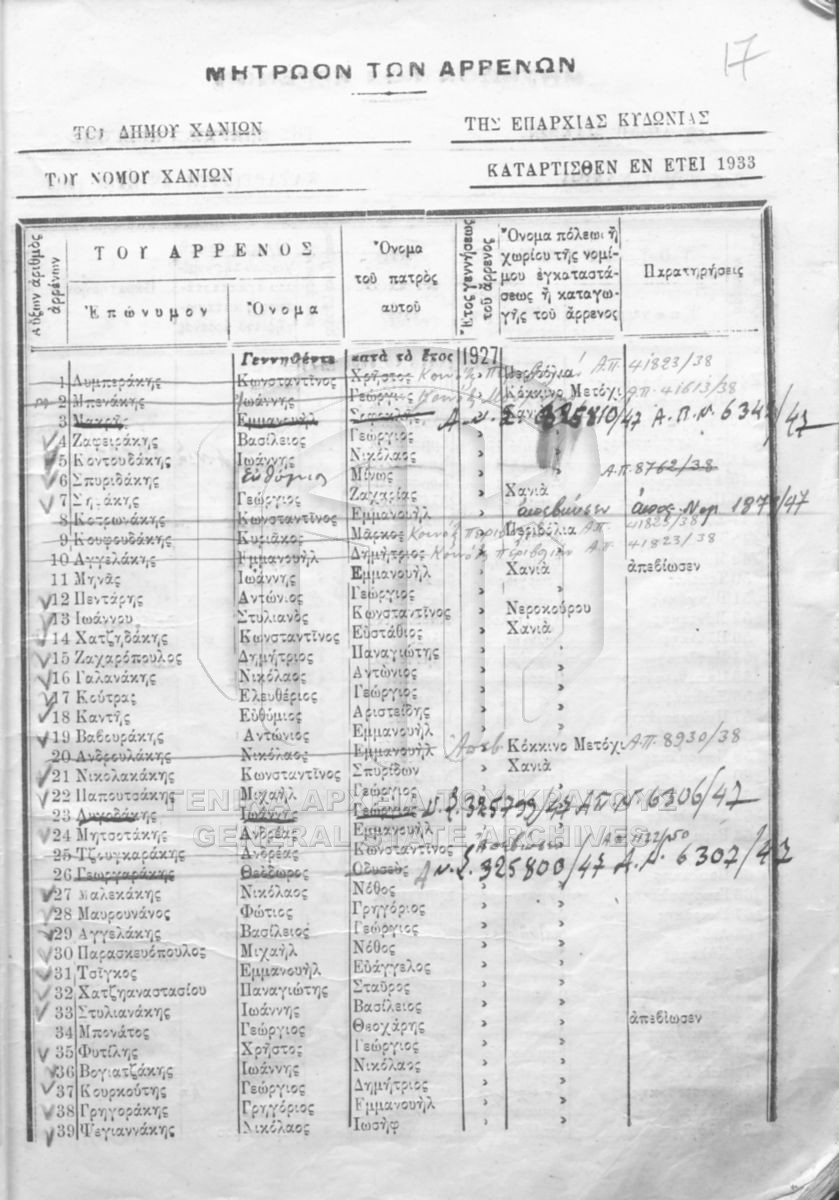 17
ΜΗΤΡΩΟΝ ΤΩΝ ΑΡΡΕΝΩΝ
ΤΟΥ ΔΗΜΟΥ ΧΑΝΙΩΝ ΤΗΣ ΕΠΑΡΧΙΑΣ ΚΥΔΩΝΙΑΣ
ΤΟΥ ΝΟΜΟΥ ΧΑΝΙΩΝ ΚΑΤΑΡΤΙΣΘΕΝ ΕΝ ΕΤΕΙ 1933
Αὔξων ἀριθμὸς ἀρρένων
ΤΟΥ ΑΡΡΕΝΟΣ
Ἐπώνυμον Ὄνομα
Ὄνομα
τοῦ πατρὸς
αὐτοῦ
Ἔτος γεννήσεως
τοῦ ἄρρενος
Ὄνομα πόλεως ἢ
χωρίου τῆς νομί-
μου ἐγκαταστά-
σεως ἢ καταγω-
γῆς τοῦ ἄρρενος
Παρατηρήσεις
Γεννηθέντε κατὰ τὸ ἔτος 1927
1 Λυμπεράκης Κωνσταντῖνος Χρῆστος Περβόλια Α.Π. 41823/38
2 Μπενάκης Ἰωάννης Γεώργιος Κόκκινο Μετόχι Α.Π. 41613/38
3 Μακρῆς Ἐμμανουὴλ 325810/47 Α.Π.Ν. 6342/47
4 Ζαφειράκης Βασίλειος Γεώργιος » »
5 Κοντουδάκης Ἰωάννης Νικόλαος » »
6 Σπυριδάκης Εὐθύμιος Μίνως » » Α.Π. 8762/38
7 Σηφάκης Γεώργιος Ζαχαρίας » Χανιὰ
8 Κοτρωνάκης Κωνσταντῖνος Ἐμμανουὴλ » » ἀπεβίωσεν 1872/47
9 Κουφουδάκης Κυριᾶκος Μᾶρκος » Περιβόλια Α.Π. 41823/38
10 Ἀγγελάκης Ἐμμανουὴλ Δημήτριος » » Α.Π. 41823/38
11 Μηνᾶς Ἰωάννης Ἐμμανουὴλ » Χανιὰ ἀπεβίωσεν
12 Πεντάρης Ἀντώνιος Γεώργιος » »
13 Ἰωάννου Στυλιανὸς Κωνσταντῖνος » Νεροκούρου
14 Χατζηδάκης Κωνσταντῖνος Εὐστάθιος » Χανιὰ
15 Ζαχαρόπουλος Δημήτριος Παναγιώτης » »
16 Γαλανάκης Νικόλαος Ἀντώνιος » »
17 Κούτρας Ἐλευθέριος Γεώργιος » »
18 Καντῆς Εὐθύμιος Ἀριστείδης » »
19 Βαβουράκης Ἀντώνιος Ἐμμανουὴλ » »
20 Ἀνδρουλάκης Νικόλαος Ἐμμανουὴλ Κόκκινο Μετόχι Α.Π. 8930/38
21 Νικολακάκης Κωνσταντῖνος Σπυρίδων » Χανιὰ
22 Παπουτσάκης Μιχαὴλ Γεώργιος » »
23 Λυκοδάκης Ἰωάννης Γεώργιος 325799/47 Α.Π.Ν. 6306/47
24 Μητσοτάκης Ἀνδρέας Ἐμμανουὴλ » »
25 Τζουγκαράκης Ἀνδρέας Κωνσταντῖνος
26 Γεωργαράκης Θεόδωρος Ὀδυσεὺς 325800/47 6307/47
27 Μαλεκάκης Νικόλαος Νόθος » »
28 Μαυρουνάνος Φώτιος Γρηγόριος » »
29 Ἀγγελάκης Βασίλειος Γεώργιος » »
30 Παρασκευόπουλος Μιχαὴλ Νόθος » »
31 Τσῖγκος Ἐμμανουὴλ Εὐάγγελος » »
32 Χατζηαναστασίου Παναγιώτης Σταῦρος » »
33 Στυλιανάκης Ἰωάννης Βασίλειος » » ἀπεβίωσεν
34 Μπονάτος Γεώργιος Θεοχάρης » »
35 Φυτίλης Χρῆστος Γεώργιος » »
36 Βογιατζάκης Ἰωάννης Νικόλαος » »
37 Κουρκούτης Γεώργιος Δημήτριος » »
38 Γρηγοράκης Γρηγόριος Ἐμμανουὴλ » »
39 Ψεγιαννάκης Νικόλαος Ἰωσὴφ » »
ΓΕΝΙΚΑ ΑΡΧΕΙΑ ΤΟΥ ΚΡΑΤΟΥΣ
GENERAL STATE ARCHIVES